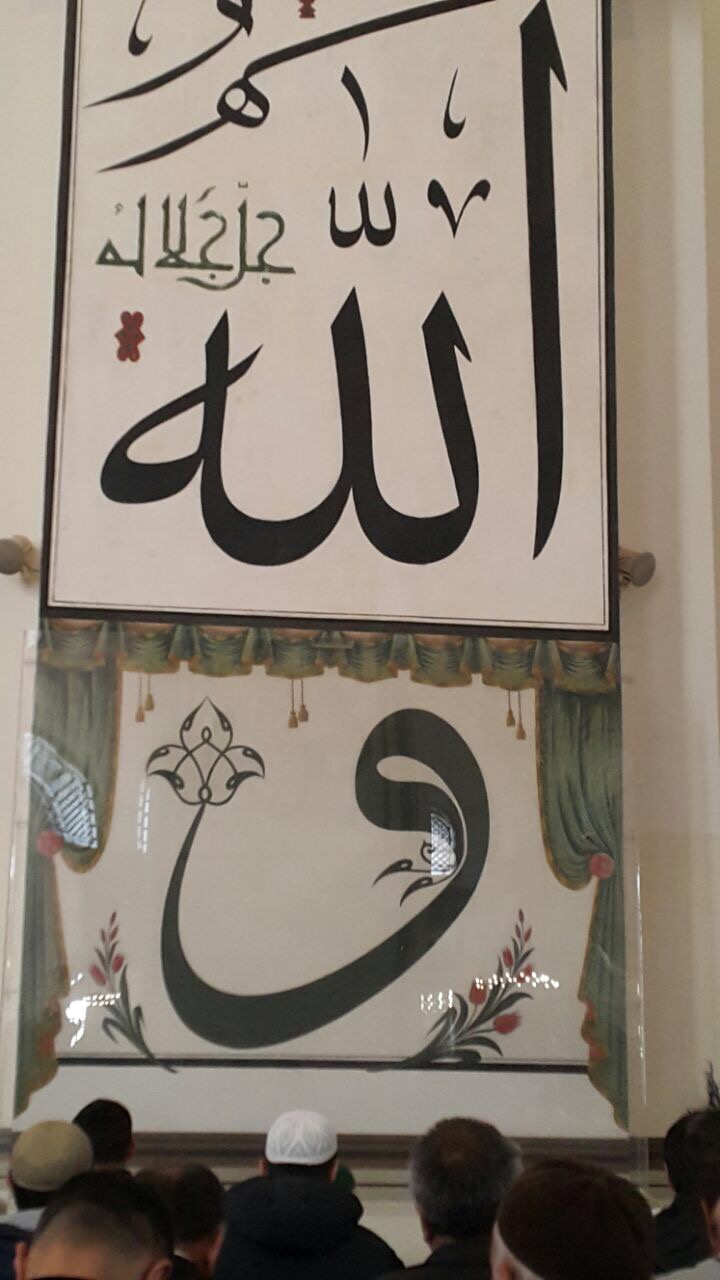 الله
جلّ جَلاله
و